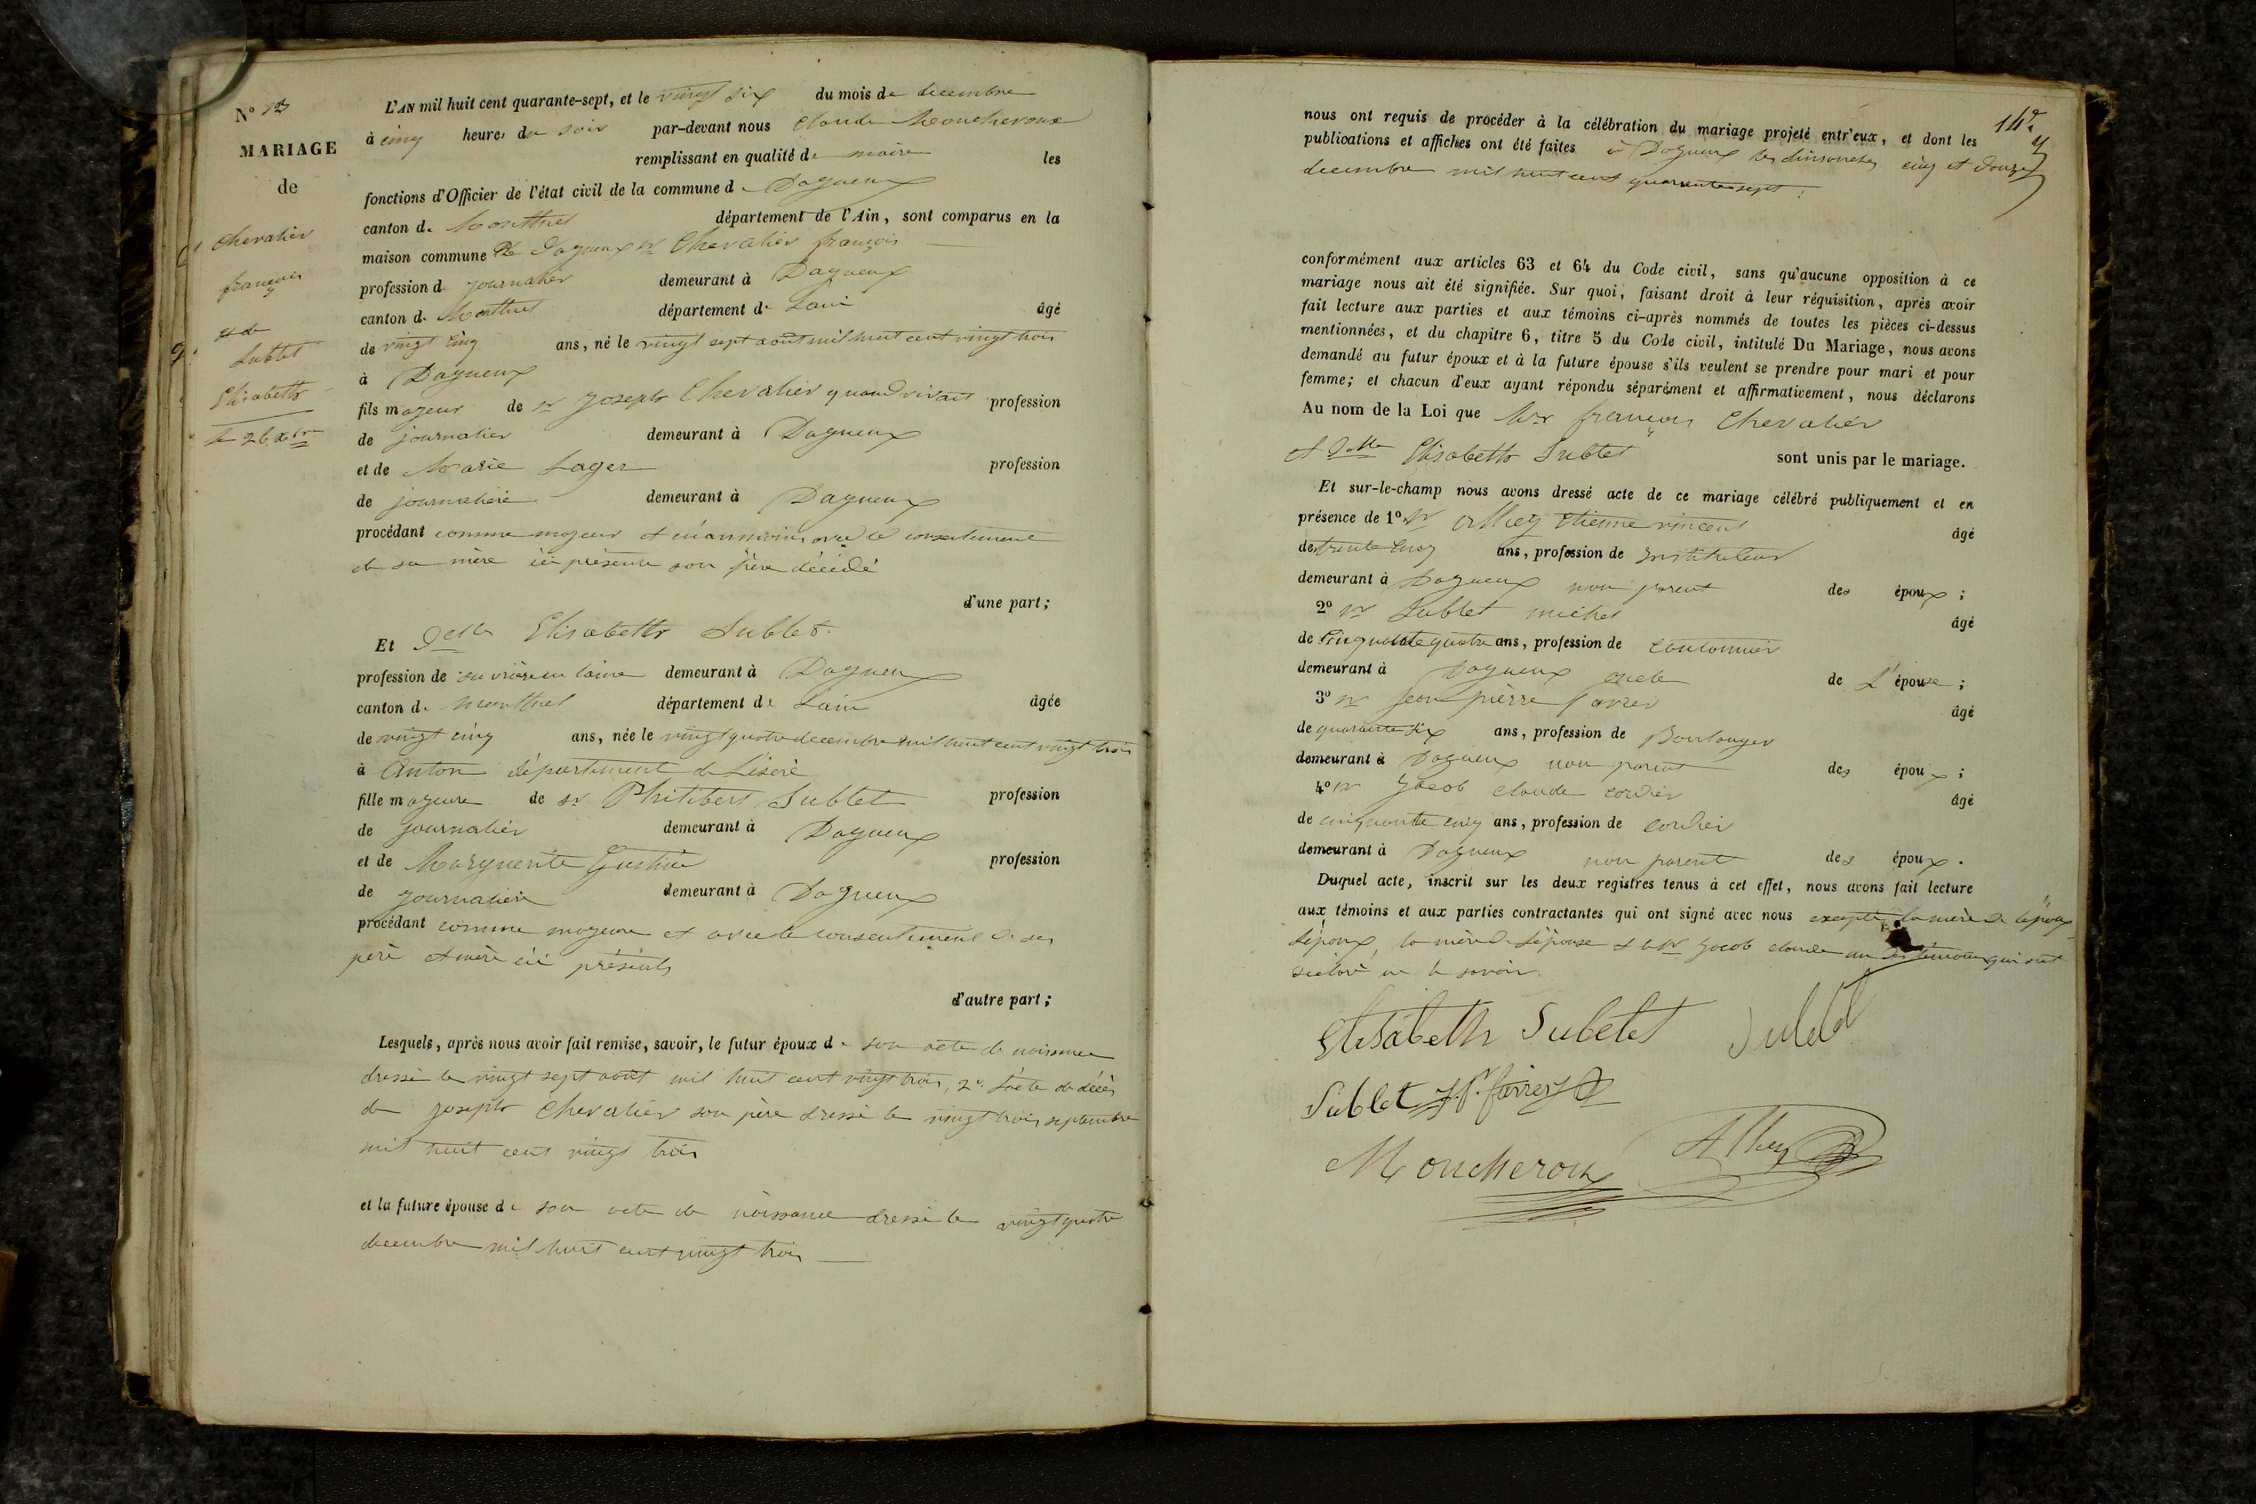 N° 13
MARIAGE
de
Chevalier
françois
et de
Sublet
Elisabeth
le 26 xbre
L'AN mil huit cent quarante-sept, et le vingt six du mois de decembre
à cinq heures du soir par-devant nous Claude Moucheroux
remplissant en qualité de maire les
fonctions d'Officier de l'état civil de la commune de Dagneux
canton de Montluel département de l'Ain, sont comparus en la
maison commune de Dagneux sr Chevalier françois
profession de journalier demeurant à Dagneux
canton de Montluel département de Lain âgé
de vingt cinq ans, né le vingt sept août mil huit cent vingt trois
à Dagneux
fils majeur de sr Joseph Chevalier quand vivait profession
de journalier demeurant à Dagneux
et de Marie Lager profession
de journaliere demeurant à Dagneux
procédant comme majeur et néanmoins avec le consentement
de sa mère ici présente son père décédé
d'une part;
Et Delle Elisabeth Sublet.
profession de ouvrière en laine demeurant à Dagneux
canton de Montluel département de Lain âgée
de vingt cinq ans, née le vingt quatre decembre mil huit cent vingt trois
à Anton département de Lisère
fille majeure de sr Philibert Sublet profession
de journalier demeurant à Dagneux
et de Marguerite profession
de journalière demeurant à Dagneux
procédant comme majeure et avec le consentement de ses
père et mère ici présents
d'autre part;
Lesquels, après nous avoir fait remise, savoir, le futur époux de son acte de naissance
dressé le vingt sept août mil huit cent vingt trois, 2° l'acte de décès
de Joseph Chevalier son père dressé le vingt trois septembre
mil huit cent vingt trois
et la future épouse de son acte de naissance dressé le vingt quatre
decembre mil huit cent vingt trois
14e
nous ont requis de procéder à la célébration du mariage projeté entr'eux, et dont les
publications et affiches ont été faites à Dagneux les dimanches cinq et douze
decembre mil huit cent quarante sept.
conformément aux articles 63 et 64 du Code civil, sans qu'aucune opposition à ce
mariage nous ait été signifiée. Sur quoi, faisant droit à leur réquisition, après avoir
fait lecture aux parties et aux témoins ci-après nommés de toutes les pièces ci-dessus
mentionnées, et du chapitre 6, titre 5 du Code civil, intitulé Du Mariage, nous avons
demandé au futur époux et à la future épouse s'ils veulent se prendre pour mari et pour
femme; et chacun d'eux ayant répondu séparément et affirmativement, nous déclarons
Au nom de la Loi que Mr françois Chevalier
et Delle Elisabeth Sublet sont unis par le mariage.
Et sur-le-champ nous avons dressé acte de ce mariage célébré publiquement et en
présence de 1° sr Alhey Etienne vincent âgé
de trente cinq ans, profession de Instituteur
demeurant à Dagneux non parent des époux;
2° sr Sublet michel âgé
de Cinquante quatre ans, profession de cantonnier
demeurant à Dagneux oncle de L'épouse;
3° sr Jean pierre âgé
de quarante six ans, profession de Boulanger
demeurant à Dagneux non parent des époux;
4° sr Jacob claude cordier âgé
de cinquante cinq ans, profession de cordier
demeurant à Dagneux non parent des époux.
Duquel acte, inscrit sur les deux registres tenus à cet effet, nous avons fait lecture
aux témoins et aux parties contractantes qui ont signé avec nous excepté la mère de l'époux
l'époux, la mère de l'épouse et le sr Jacob claude un des témoins qui ont
déclaré ne le savoir
Elisabeth Subelet Sublet
Sublet J.P. farrer
Moucheroux Alhey